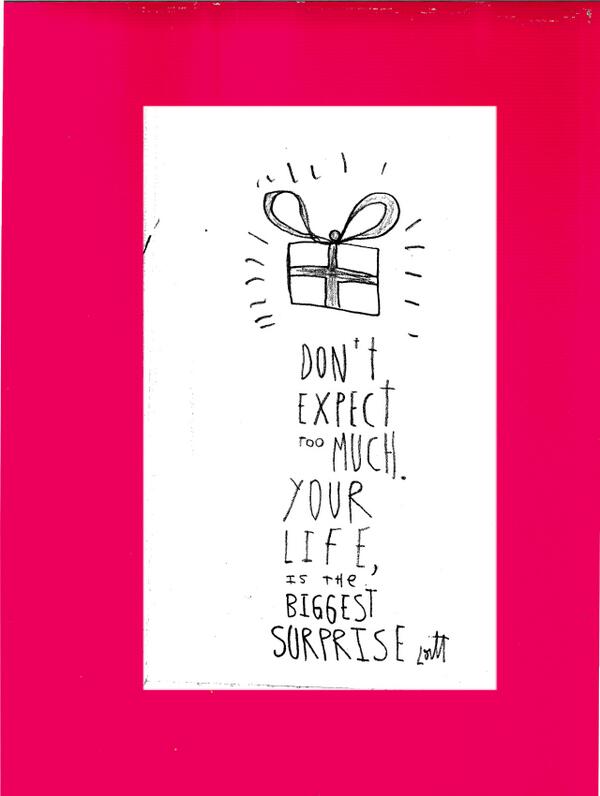 DON't
EXPECT
TOO MUCH.
YOUR
LIFE,
IS THE
BIGGEST
SURPRISE